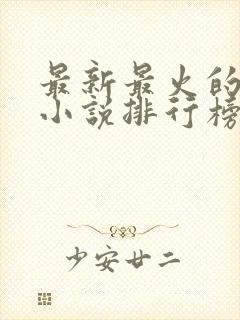 最新最火的
小说排行榜
少安廿二